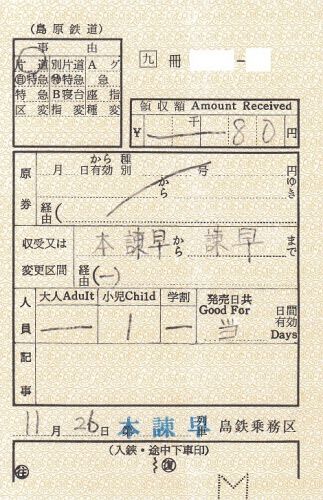 (島原鉄道)
事由
片道 別片道 A グ
自特急 特特急 急
特急 B寝台 座指
区変 指変 種変
九 冊 －
領収額 Amount Received
￥ 千 80 円
原券
月 日から有効 種別 号 円
から ゆき
経由(
収受又は変更区間
本諫早 から 諫早 まで
経由(一)
人員
大人Adult 小児Child 学割 発売日共 Good For 日間有効 Days
一 1 一 当
記事
11月26日 本諫早 島鉄乗務区
(入鋏・途中下車印)